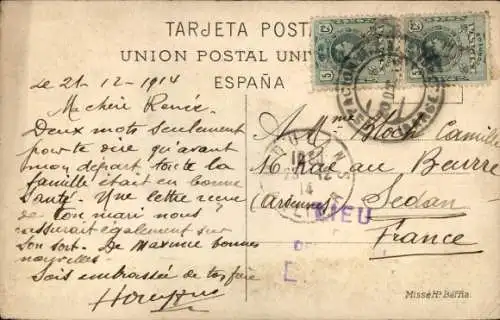 TARJETA POSTA
UNION POSTAL UNI
ESPAÑA
5 Cs
5
le 21-12-1914
Ma chère Renée
Deux mots seulement
pour te dire qu'avant
mon départ toute la
famille était en bonne
Santé. Une lettre reçue
de ton mari nous
rassurait également sur
son sort. De Maxime bonnes
nouvelles.
Sois embrassée de ton frère
A Mme Bloch Camille
16 Rue au Beurre
Sedan
(Ardennes)
France
14
LIEU
DE
Missé Hs Bèffia